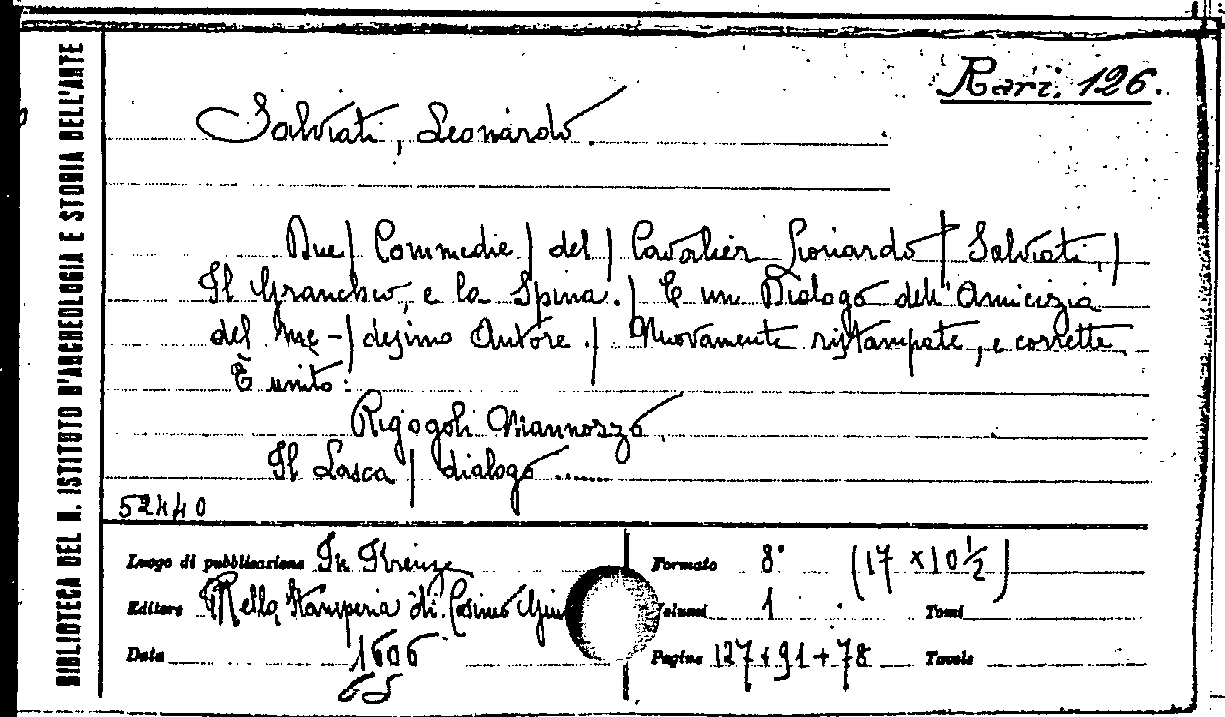 BIBLIOTECA DEL R. ISTITUTO D'ARCHEOLOGIA E STORIA DELL'ARTE
Rari. 126.
Salviati, Leonardo.
Due | Commedie | del | Cavalier Lionardo | Salviati, |
Il Granchio, e la Spina. | E un Dialogo dell'Amicizia
del me- | desimo Autore. | Nuovamente ristampate, e corrette
È unito:
Rigogoli Mannozzo.
Il Lasca | dialogo ......
52440
Luogo di pubblicazione In Firenze
Editore Nella Stamperia di Cosimo Giun
Data 1606
Formato 8° (17 x 10 ½)
Volumi 1 Tomi
Pagine 127+91+78 Tavole